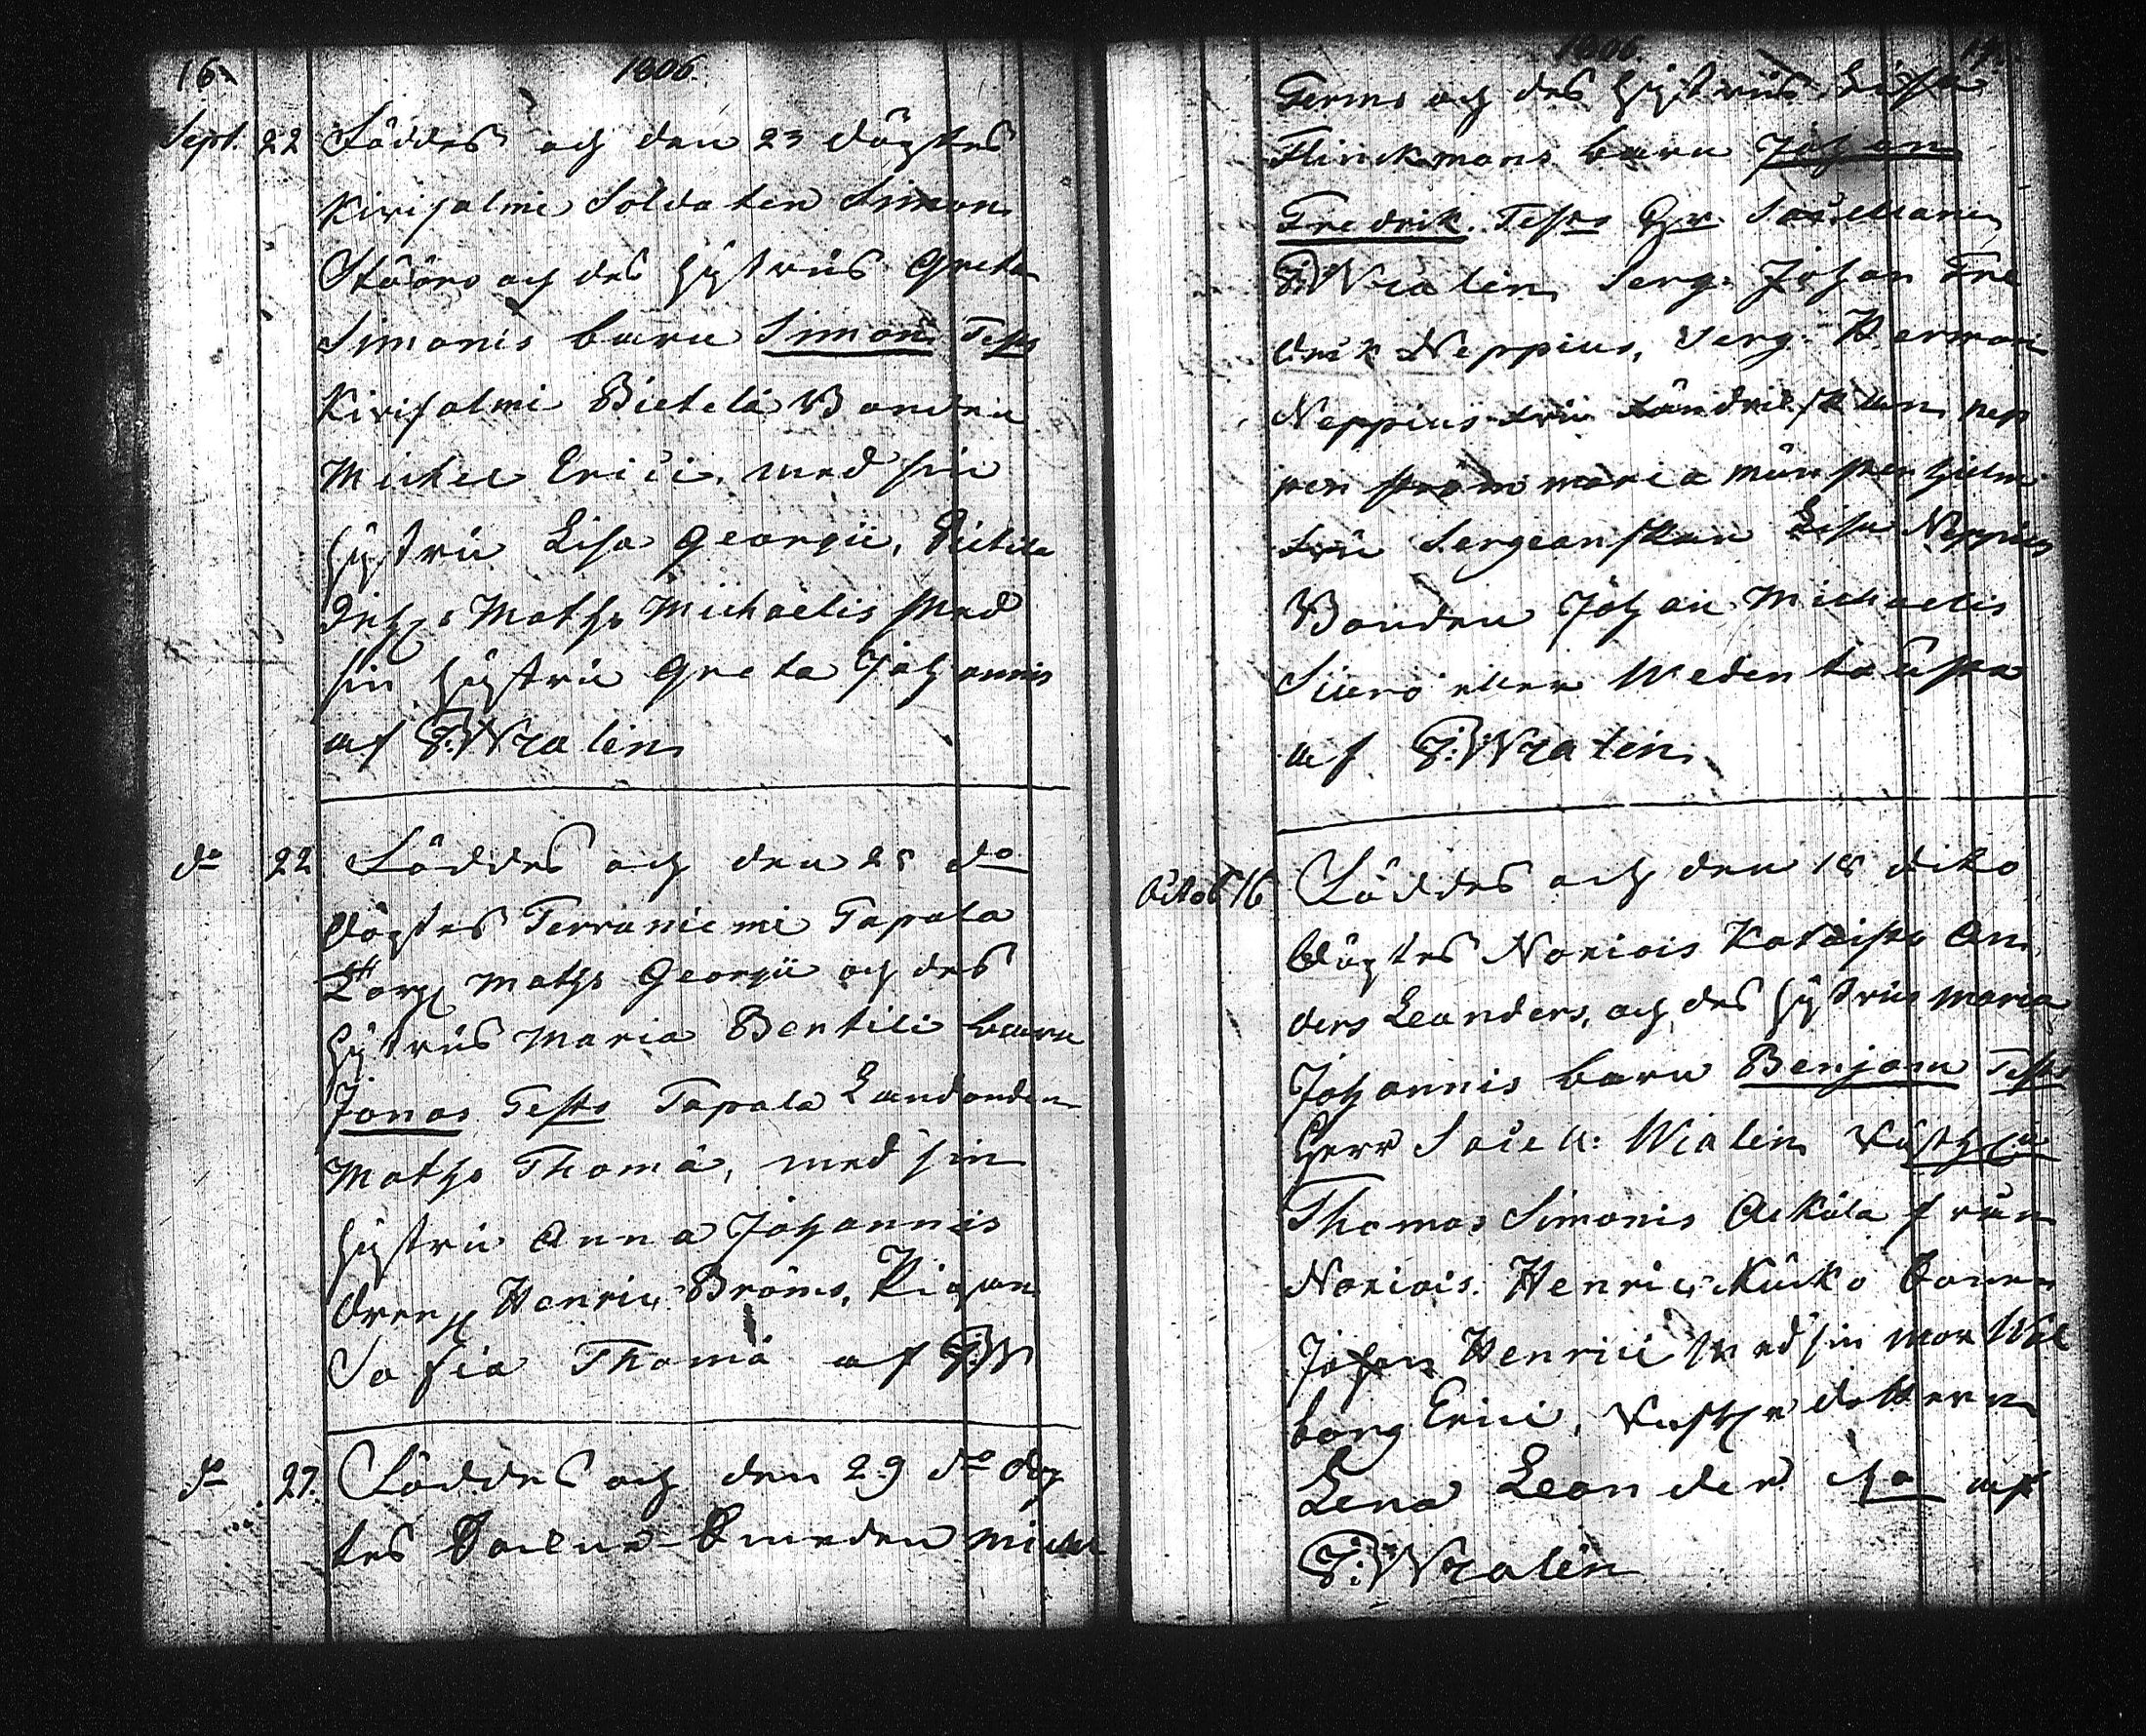 16.
1806.
Sept. 22 Föddes och den 23 döptes
Kirisalmi Soldaten Simon
Stööro och des hystrus Greta
Simonis barn Simon Test:
Kirisalmi Pietelä Bonden
Michel Erici, med sin
hustru Lisa Georgii, Pietile
Inh: Maths Michaelis med
sin hustru Greta Johannis
af G: Wralin
do 22 Föddes och den 25 do
döptes Terraniemi Tapala
Torp: Maths Georgii och des
hustrus Maria Bentili barn
Jonas Test: Tapala Landbonden
Maths Thomä, med sin
hustru Anna Johannis
dreng Henric Bröms, Pigan
Sofia Thomä af G:W
do 27. Föddes och den 29 do döp
tes Smeden Michel
1806. 17.
Germs och des hustrus Lissa
Flinckmans barn Johan
Fredrik. Test: Hr Sacellan
G: Wralin, Serg: Johan Fre
drik Neppius, Serg: Herman
Neppius
Maria
Sergeanskan Lisa Neppius
Bonden Johan Michaelis
Wedentausta
af G: Wralin
Octob 16 Föddes och den 18 dito
döptes Noxiois Katoisto An
ders Leanders, och des hustrus Maria
Johannis barn Benjam Test:
Herr Sacell: Wralin
Thomas Simonis från
Noxiois. Henric Kucko
Johan Henrici med sin mor Wal
borg Erici, dottern
Lena Leander af
G: Wralin